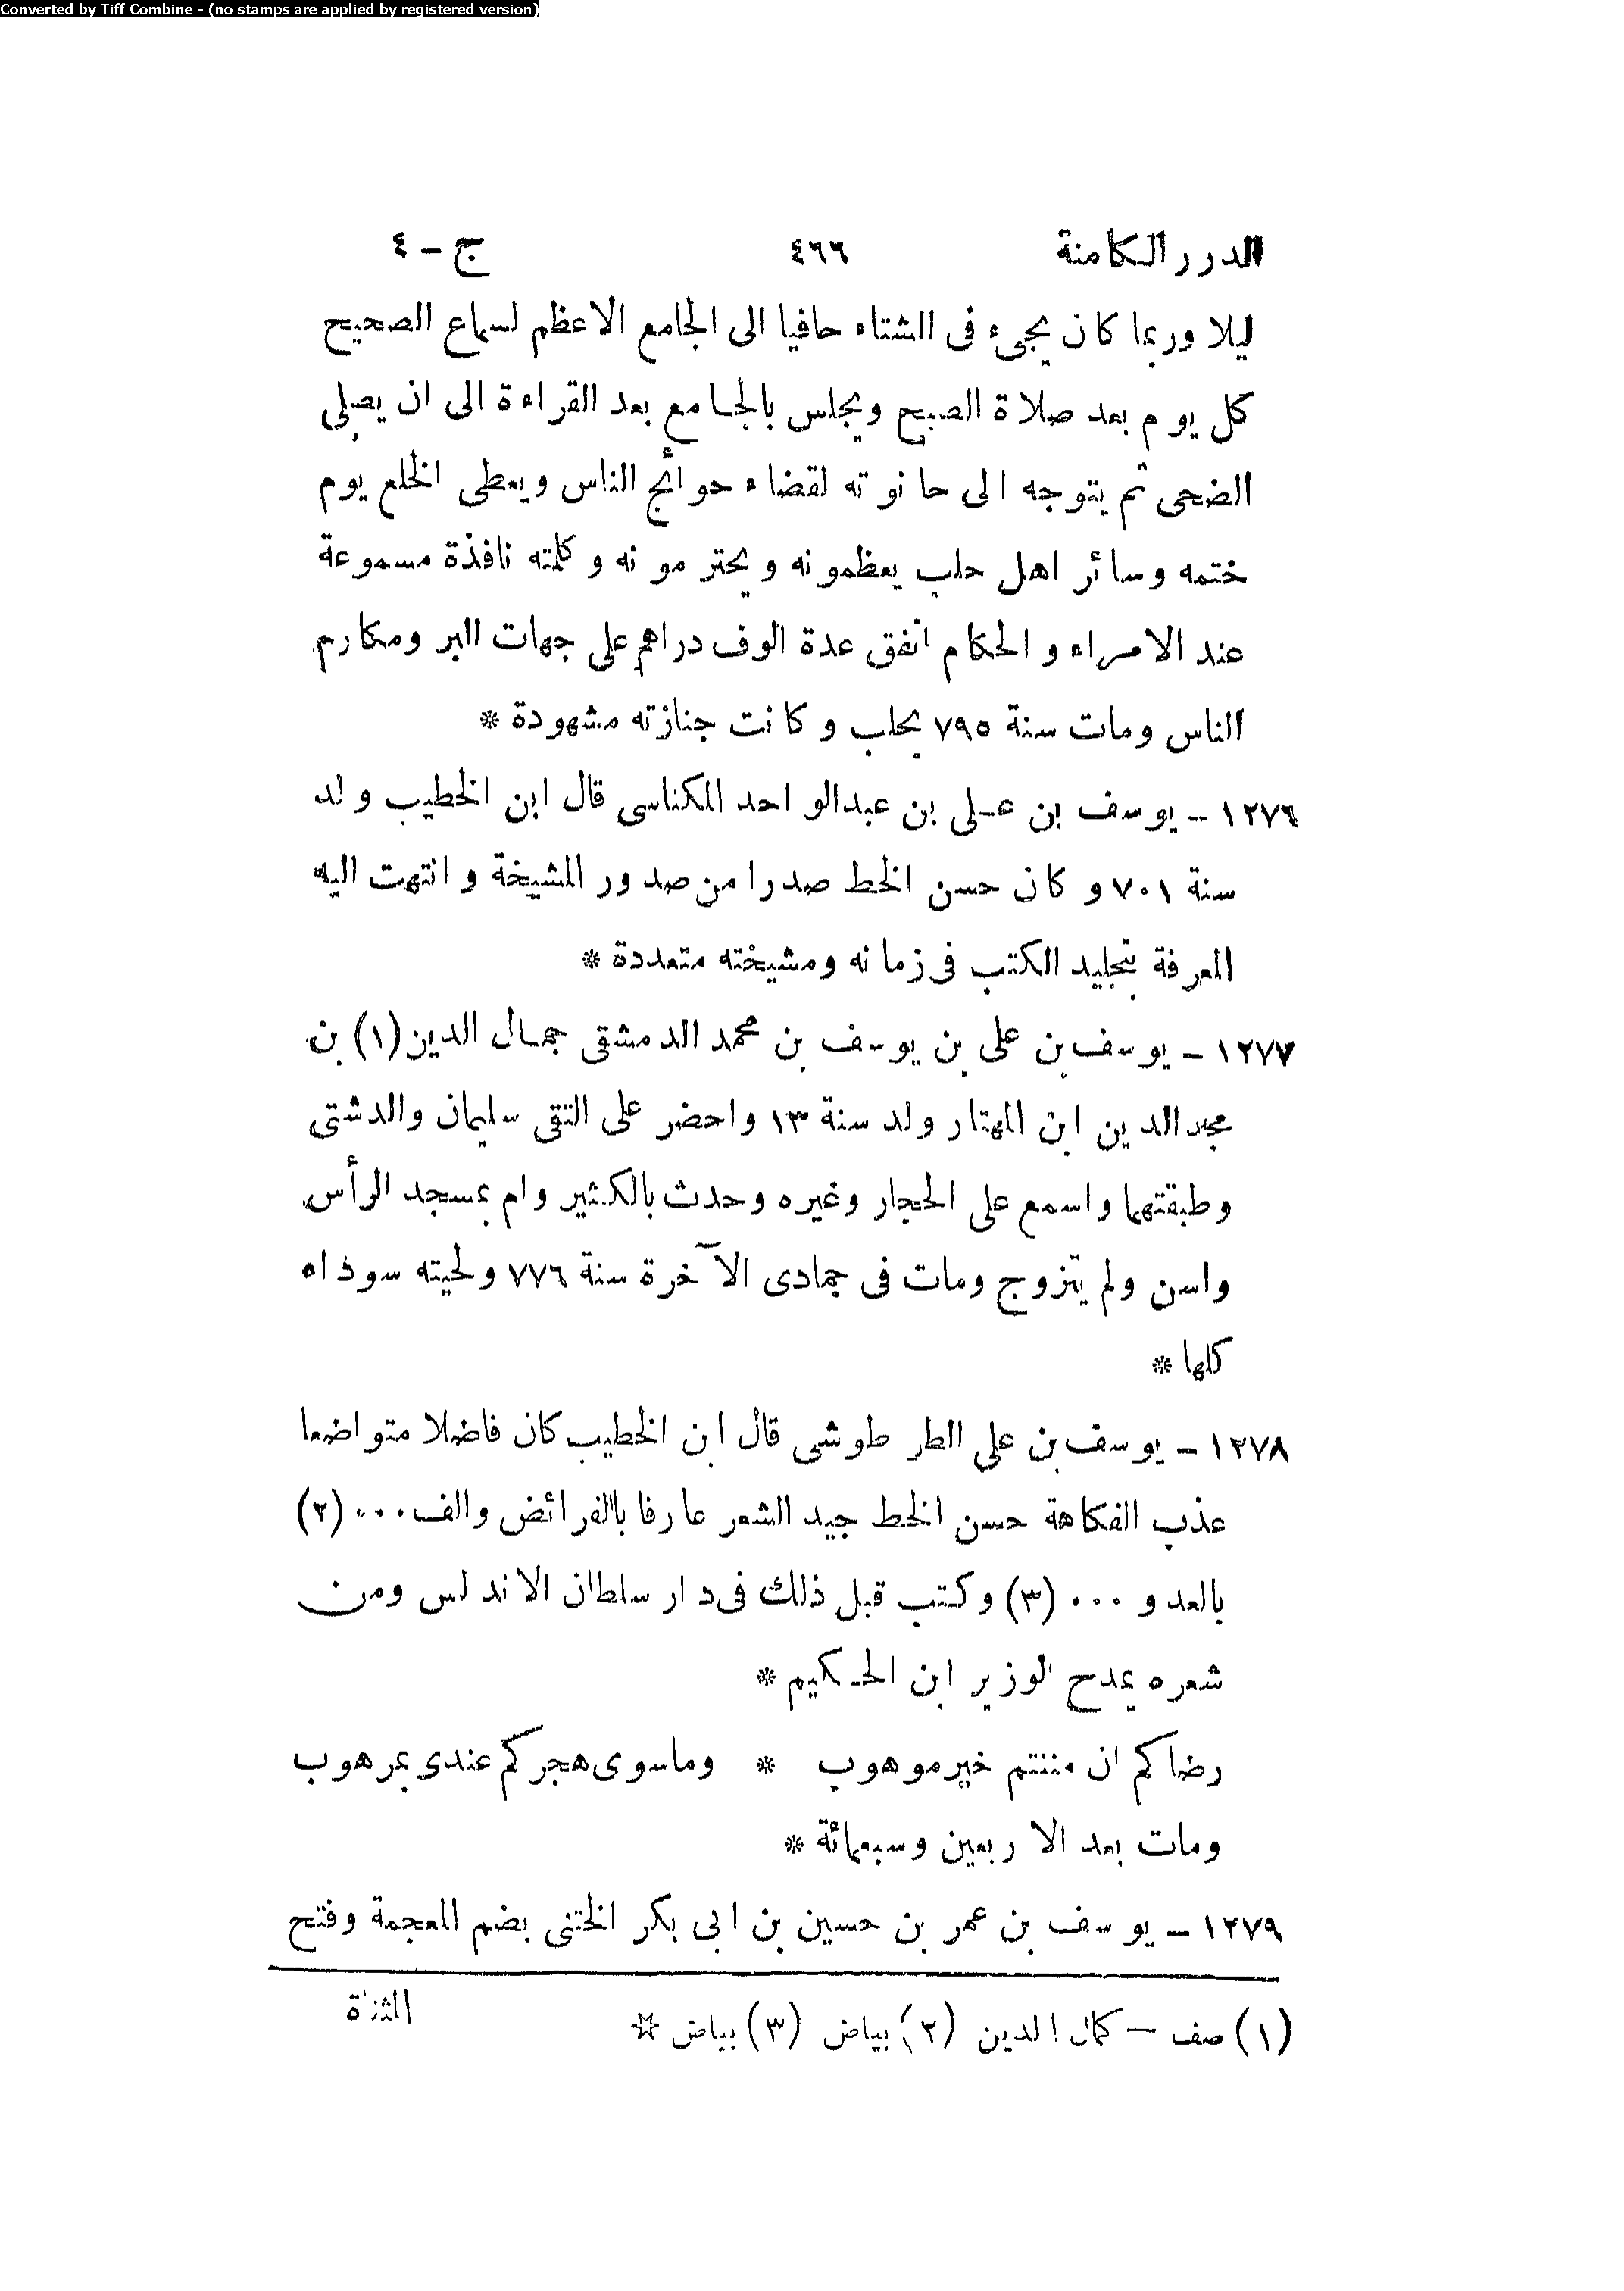 Converted by Tiff Combine - (no stamps are applied by registered version)
الدرر الكامنة ٤٦٦ ج - ٤
ليلا وربما كان يجىء فى الشتاء حافيا الى الجامع الاعظم لسماع الصحيح
كل يوم بعد صلاة الصبح ويجلس بالجامع بعد القراءة الى ان يصلى
الضحى ثم يتوجه الى حانوته لقضاء حوائج الناس ويعطى الخلع يوم
ختمه وسائر اهل حلب يعظمونه ويحترمونه وكلمته نافذة مسموعة
عند الامراء والحكام انفق عدة الوف دراهم على جهات البر ومكارم
الناس ومات سنة ٧٩٥ بحلب وكانت جنازته مشهودة *
١٢٧٦ - يوسف بن على بن عبدالواحد المكناسى قال ابن الخطيب ولد
سنة ٧٠١ وكان حسن الخط صدرا من صدور المشيخة وانتهت اليه
المعرفة بتجليد الكتب فى زمانه ومشيخته متعددة *
١٢٧٧ - يوسف بن على بن يوسف بن محمد الدمشقى جمال الدين (١) بن
مجد الدين ابن المهتار ولد سنة ١٣ واحضر على التقى سليمان والدشتى
وطبقتهما واسمع على الحجار وغيره وحدث بالكثير وام بمسجد الرأس
واسن ولم يتزوج ومات فى جمادى الآخرة سنة ٧٧٦ ولحيته سوذاء
كلها *
١٢٧٨ - يوسف بن على الطرطوشى قال ابن الخطيب كان فاضلا متواضعا
عذب الفكاهة حسن الخط جيد الشعر عارفا بالفرائض والف ... (٢)
بالعدو ... (٣) وكتب قبل ذلك فى دار سلطان الاندلس ومن
شعره يمدح الوزير ابن الحكيم *
رضاكم ان مننتم خير موهوب * وما سوى هجركم عندى بمرهوب
ومات بعد الاربعين وسبعمائة *
١٢٧٩ - يوسف بن عمر بن حسين بن ابى بكر الختنى بضم المعجمة وفتح
المثناة
(١) صف - كمال الدين (٢) بياض (٣) بياض ☆